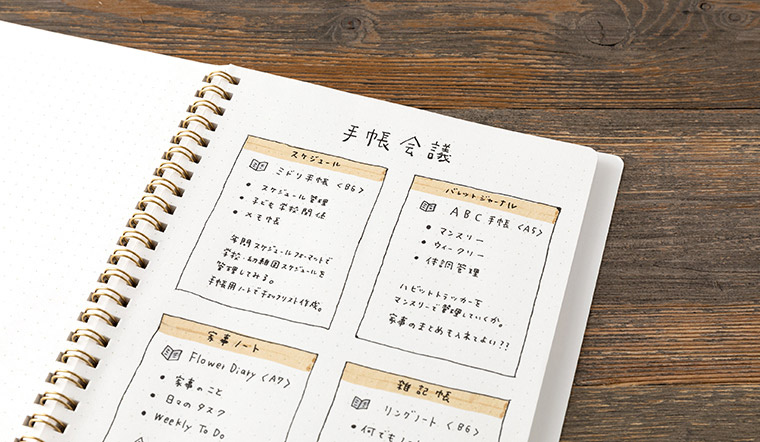 手帳会議
スケジュール
ミドリ手帳〈B6〉
• スケジュール管理
• 子ども学校関係
• メモ帳
年間スケジュールフォーマットで
学校・幼稚園スケジュールを
管理してみる。
手帳用ノートでチェックリスト作成。
バレットジャーナル
ABC手帳〈A5〉
• マンスリー
• ウィークリー
• 体調管理
ハビットトラッカーを
マンスリーで管理していくか。
家事のまとめも入れてよい??
家事ノート
Flower Diary〈A7〉
• 家事のこと
• 日々のタスク
• Weekly To Do
雑記帳
リングノート〈B6〉
• 何でも